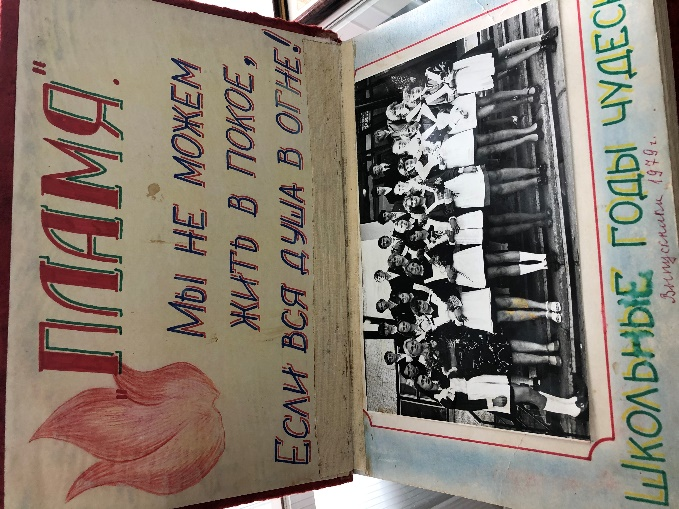 "ПЛАМЯ".
МЫ НЕ МОЖЕМ
ЖИТЬ В ПОКОЕ,
ЕСЛИ ВСЯ ДУША В ОГНЕ!
ШКОЛЬНЫЕ ГОДЫ ЧУДЕСН
Выпускники 1979 г.